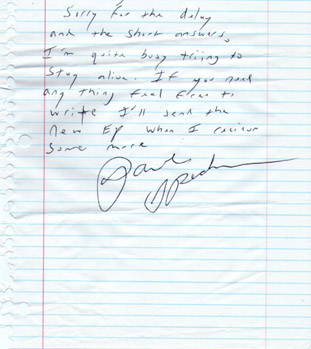 Sorry for the delay
and the short answers,
I'm quite busy trijng to
Stay alive. If you need
any thing feel free to
write I'll send the
New EP when I reciever
Some more